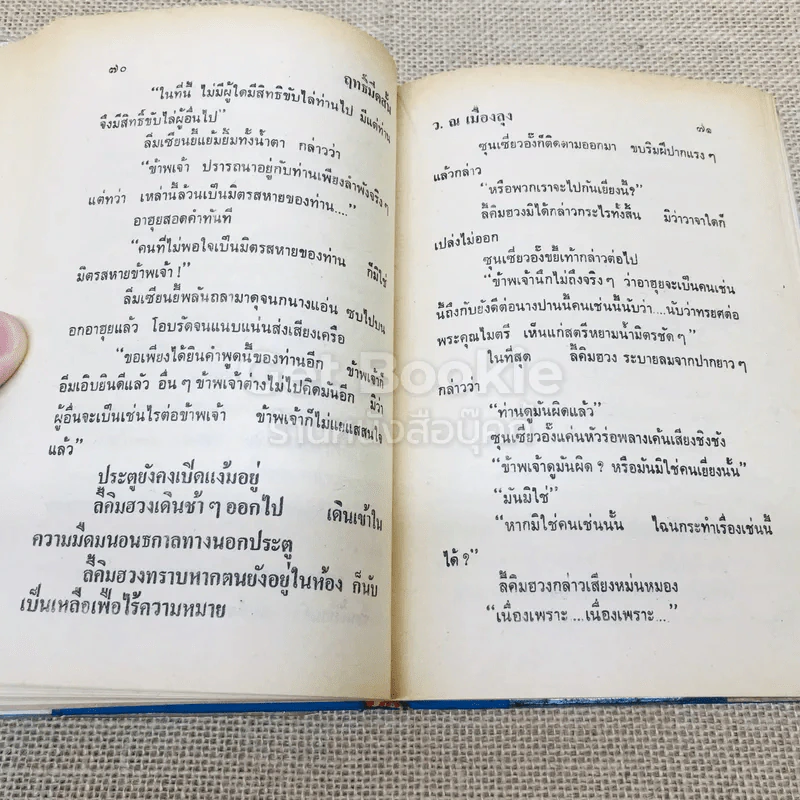 ๗๐
ฤทธิ์มีดสั้น
“ในที่นี้ ไม่มีผู้ใดมีสิทธิขับไล่ท่านไป มีแต่ท่าน
จึงมีสิทธิ์ขับไล่ผู้อื่นไป”
ลิ้มเซียนยี้แย้มยิ้มทั้งน้ำตา กล่าวว่า
“ข้าพเจ้า ปรารถนาอยู่กับท่านเพียงลำพังจริงๆ
แต่ทว่า เหล่านี้ล้วนเป็นมิตรสหายของท่าน....”
อาฮุยสอดคำทันที
“คนที่ไม่พอใจเป็นมิตรสหายของท่าน ก็มิใช่
มิตรสหายข้าพเจ้า!”
ลิ้มเซียนยี้พลันถลามาดุจนกนางแอ่น ซบไปบน
อกอาฮุยแล้ว โอบรัดจนแนบแน่นส่งเสียงเครือ
“ขอเพียงได้ยินคำพูดนี้ของท่านอีก ข้าพเจ้าก็
อิ่มเอิบยินดีแล้ว อื่นๆ ข้าพเจ้าต่างไม่ไปคิดมันอีก มิว่า
ผู้อื่นจะเป็นเช่นไรต่อข้าพเจ้า ข้าพเจ้าก็ไม่แยแสสนใจ
แล้ว”
ประตูยังคงเปิดแง้มอยู่
ลี้คิมฮวงเดินช้าๆ ออกไป เดินเข้าใน
ความมืดมนอนธกาลทางนอกประตู
ลี้คิมฮวงทราบหากตนยังอยู่ในห้อง ก็นับ
เป็นเหลือเฟือไร้ความหมาย
ว. ณ เมืองลุง
๗๑
ซุนเซี่ยวอั้งก็ติดตามออกมา ขบริมฝีปากแรงๆ
แล้วกล่าว
“หรือพวกเราจะไปกันเยี่ยงนี้?”
ลี้คิมฮวงมิได้กล่าวกระไรทั้งสิ้น มิว่าวาจาใดก็
เปล่งไม่ออก
ซุนเซี่ยวอั้งขยี้เท้ากล่าวต่อไป
“ข้าพเจ้านึกไม่ถึงจริงๆ ว่าอาฮุยจะเป็นคนเช่น
นี้ถึงกับยังดีต่อนางปานนี้คนเช่นนี้นับว่า....นับว่าทรยศต่อ
พระคุณไมตรี เห็นแก่สตรีหยามน้ำมิตรชัดๆ”
ในที่สุด ลี้คิมฮวง ระบายลมจากปากยาวๆ
กล่าวว่า
“ท่านดูมันผิดแล้ว”
ซุนเซี่ยวอั้งแค่นหัวร่อพลางเค้นเสียงชิงชัง
“ข้าพเจ้าดูมันผิด? หรือมันมิใช่คนเยี่ยงนั้น”
“มันมิใช่”
“หากมิใช่คนเช่นนั้น ไฉนกระทำเรื่องเช่นนี้
ได้?”
ลี้คิมฮวงกล่าวเสียงหม่นหมอง
“เนื่องเพราะ....เนื่องเพราะ....”
Get Bookie
ร้านหนังสือบุ๊คกี้